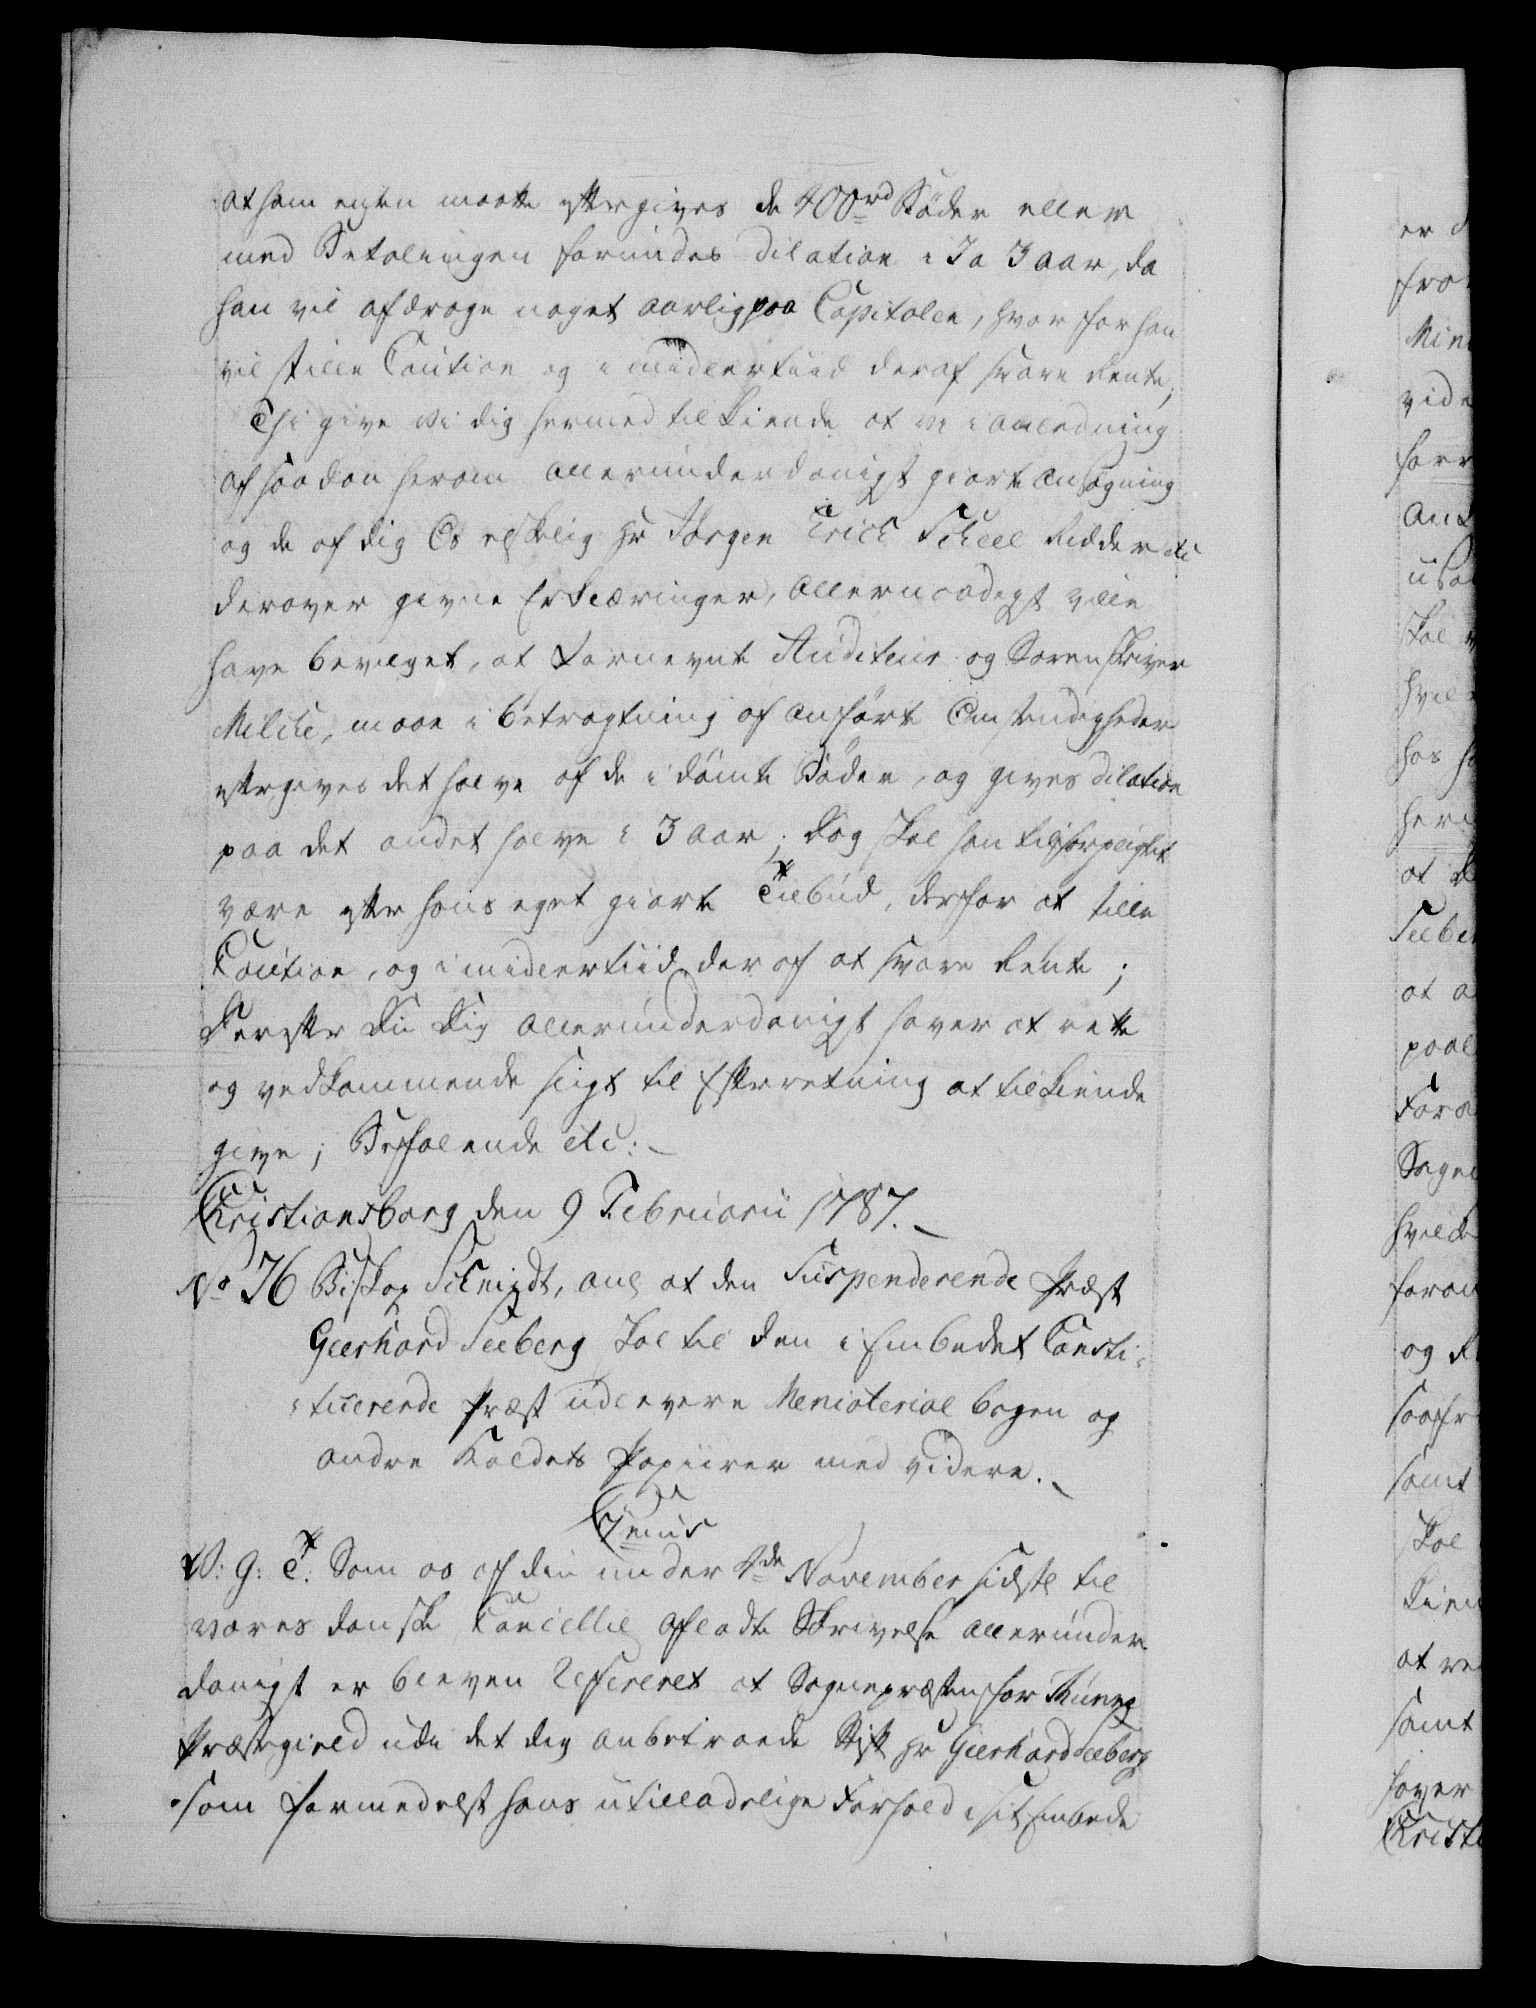 at ham enten maatte eftergives de 400 rd Bøder eller
med Betalingen forundes Dilation i 2 a 3 aar, da
han vil afdrage noget aarlig paa Capitalen, hvorfor han
vil stille Caution og imidlertiid deraf svare Rente,
Thi give Vi dig hermed tilkiende at vi i anledning
af saadan herom allerunderdanigst giorte ansøgning
og de af dig Os elskelig Hr Jørgen Erich Scheel Ridder etc
derover givne Erklæringer, allernaadigst ville
have bevilget, at fornevnte Auditeur og Sorenskriver
Milche, maae i betragtning af anførte Omstendigheder
eftergives det halve af de idømte Bøder, og gives dilation
paa det andet halve i 3 aar; dog skal han tilforpligtet
være efter hans eget giorte Tilbud, derfor at stille
Caution, og imidlertiid der af at svare Rente;
Derefter Du Dig allerunderdanigst haver at rette
og vedkommende sligt til Efterretning at tilkiende
give; Befalende etc:
Christiansborg den 9 Februarii 1787.
No 76 Biskop Schmidt, ang at den Suspenderende Præst
Geerhard Seeberg skal til den i Embedet Consti-
-tuerende Præst udlevere Menisterial bogen og
andre Kaldets Papiirer med videre.
Genus
V: G: T: Som os af din under 4de November sidste til
vores danske Cancellie afladte Skrivelse allerunder
danigst er bleven Refereret at Sognepræsten for
Præstegield udi det dig anbetroede Stift Hr Geerhard Seeberg
som formedelst hans utilladelige Forhold i sit Embede
er
fra
Min
vide
for
skal
hvil
hos
her
at
Seeber
at
paal
For
Sogne
hvilke
foran
og
saafre
samt
skal
Kien
at
samt
haver
Christi